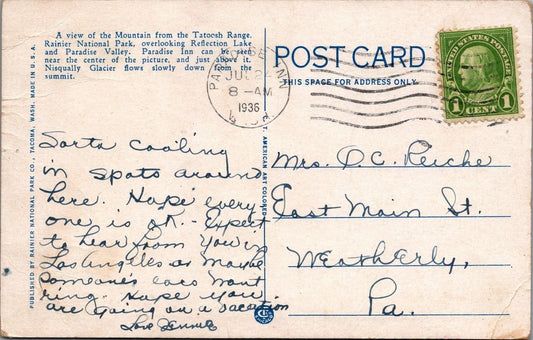 A view of the Mountain from the Tatoosh Range.
Rainier National Park, overlooking Reflection Lake
and Paradise Valley. Paradise Inn can be seen
near the center of the picture, and just above it.
Nisqually Glacier flows slowly down from the
summit.
POST CARD
THIS SPACE FOR ADDRESS ONLY.
PARADISE INN
JUL 24
8 - AM
1936
UNITED STATES POSTAGE
1 CENT 1
PUBLISHED BY RAINIER NATIONAL PARK CO., TACOMA, WASH. MADE IN U.S.A.
AMERICAN ART COLORED
Sorta cooling
in spots around
here. Hope every
one is ok. - Expect
to hear from you in
Los Angeles or maybe
someone's ears want
ring. Hope you
are going on a vacation
Love
Mrs. O.C. Reiche
East Main St.
Weatherly,
Pa.